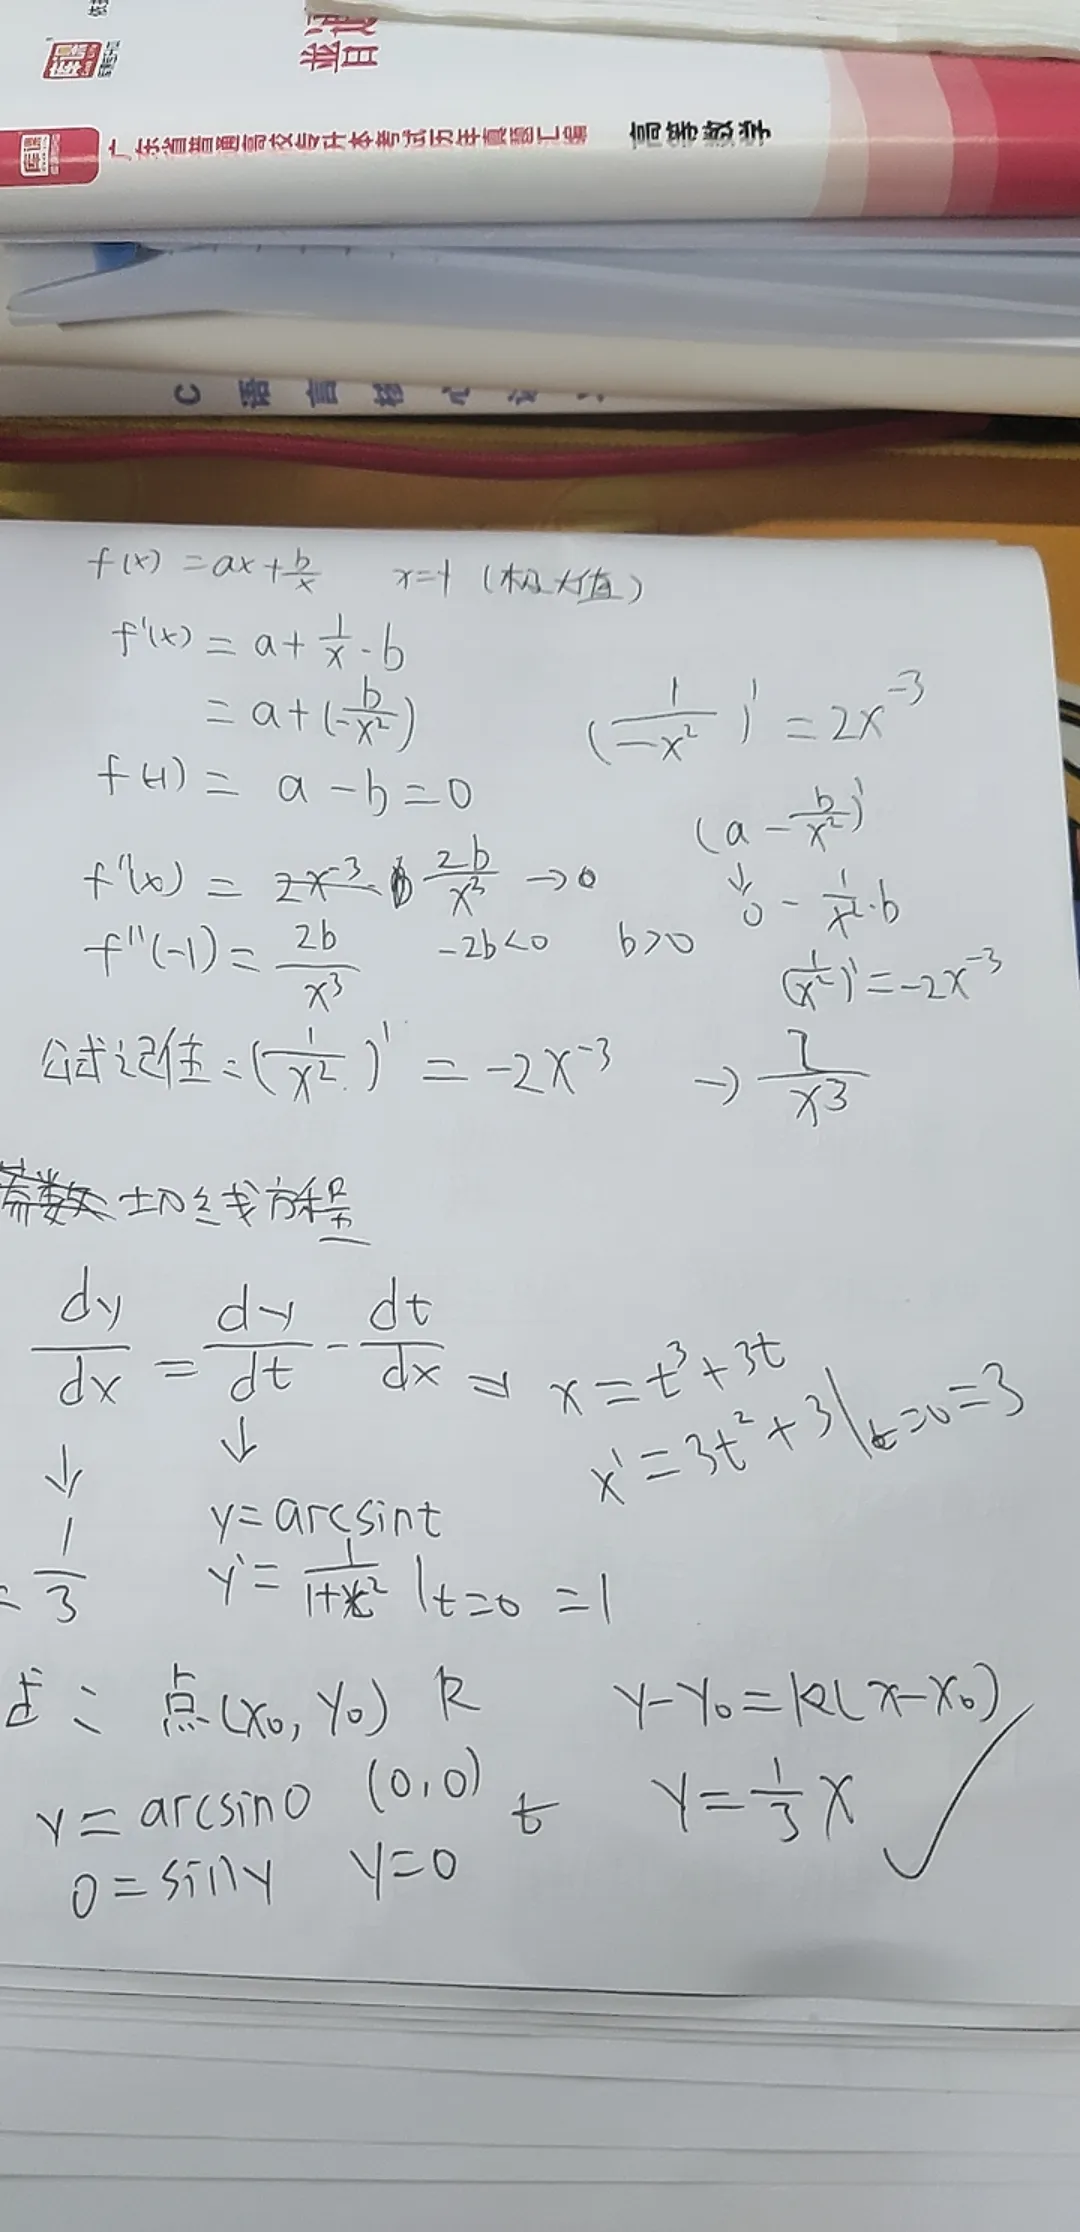 普通
库课 广东省普通高校专升本考试历年真题汇编 高等数学
C语言核心
f(x) = ax + b/x x=-1 (极大值)
f'(x) = a + 1/x · b
= a + (b/-x²)
(1/-x²)' = 2x⁻³
f(-1) = a - b = 0
(a - b/x²)'
f''(x) = 2x⁻³ 2b/x³ → 0
↓
0 - 1/x² · b
f''(-1) = 2b/x³ -2b<0 b>0
(1/x²)' = -2x⁻³
公式记住: (1/x²)' = -2x⁻³ → 2/x³
切线方程
dy/dx = dy/dt - dt/dx ⇒ x = t³ + 3t
x' = 3t² + 3 |t=0 = 3
↓ ↓
y = arcsint
= 1/3 y' = 1/1+t² |t=0 = 1
式: 点(x₀, y₀) k y-y₀ = k(x-x₀)
y = arcsin0 (0,0) t y = 1/3 x
0 = siny y=0